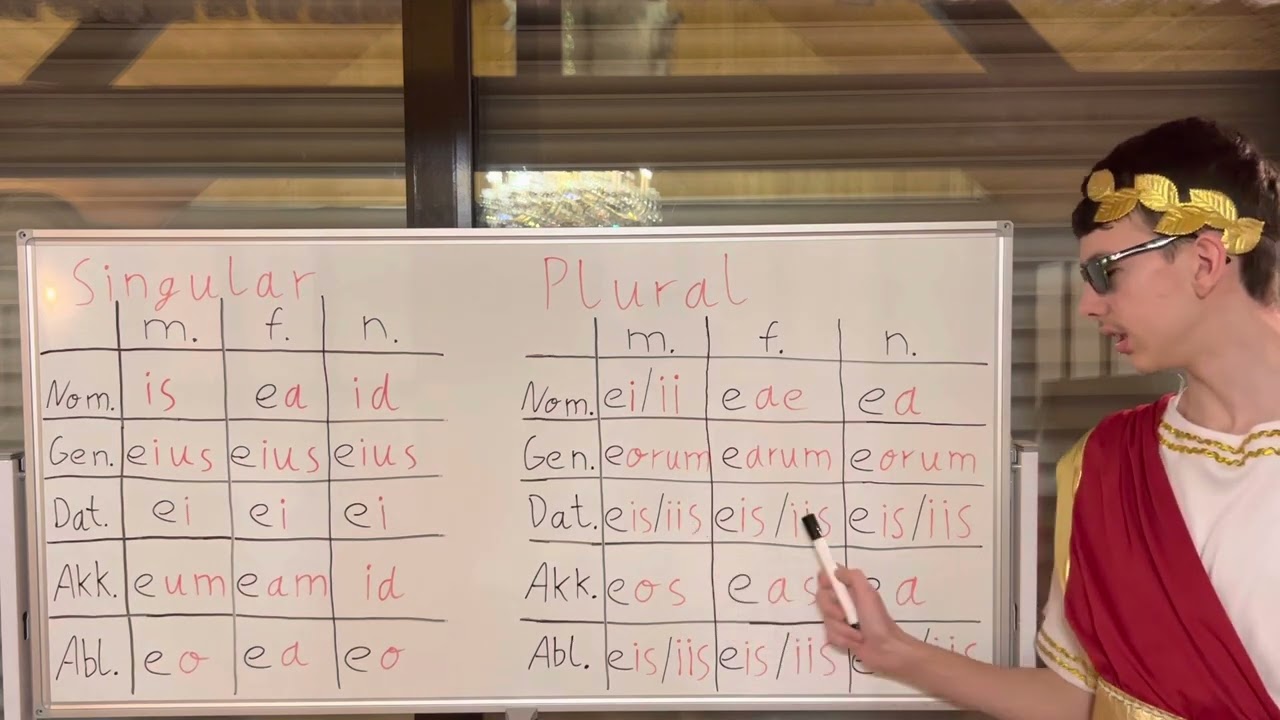 Singular Plural
m. f. n. m. f. n.
Nom. is ea id Nom. ei/ii eae ea
Gen. eius eius eius Gen. eorum earum eorum
Dat. ei ei ei Dat. eis/iis eis/iis eis/iis
Akk. eum eam id Akk. eos eas ea
Abl. eo ea eo Abl. eis/iis eis/iis